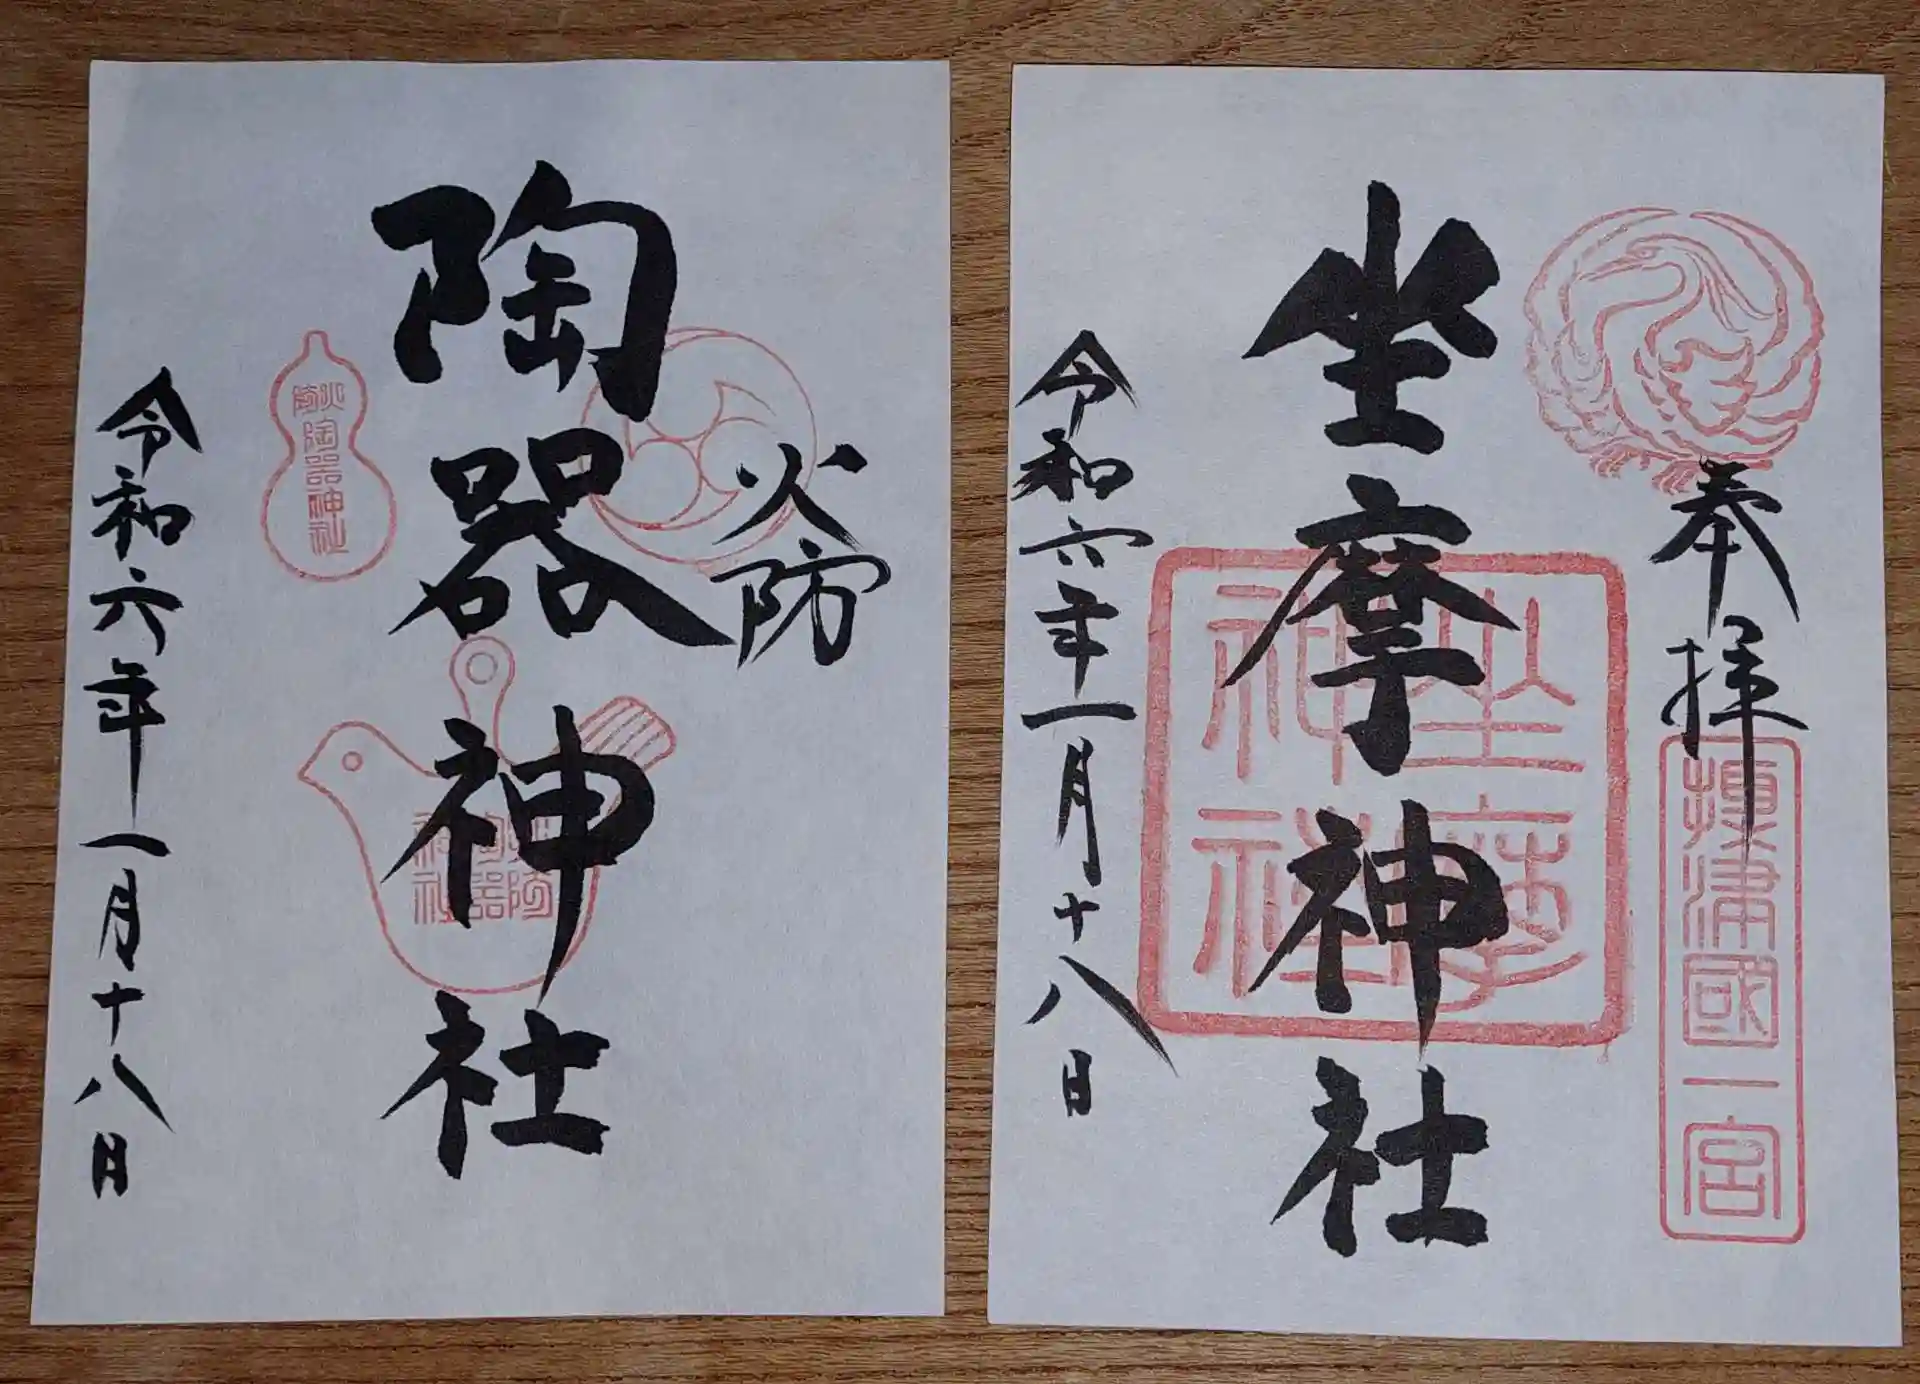 奉拝
摂津國一宮
坐摩神社
坐摩神社
令和六年一月十八日
火防
陶器神社
火防
陶器神社
火防
陶器
神社
令和六年一月十八日